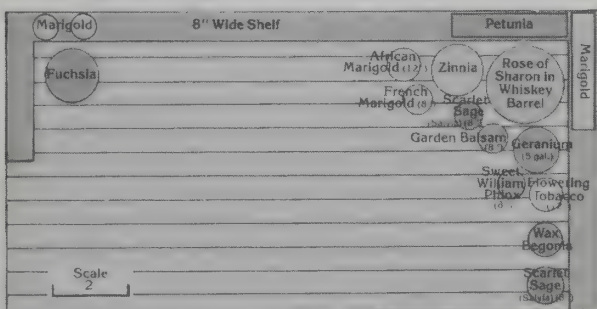 Marigold
8" Wide Shelf
Petunia
Marigold
Fuchsia
African
Marigold (12")
Zinnia
Rose of
Sharon in
Whiskey
Barrel
French
Marigold (8")
Scarlet
Sage
Garden Balsam
(8")
Geranium
(5 gal.)
Sweet
William
Phlox
Flowering
Tobacco
Wax
Begonia
Scarlet
Sage
(Salvia)
Scale
2